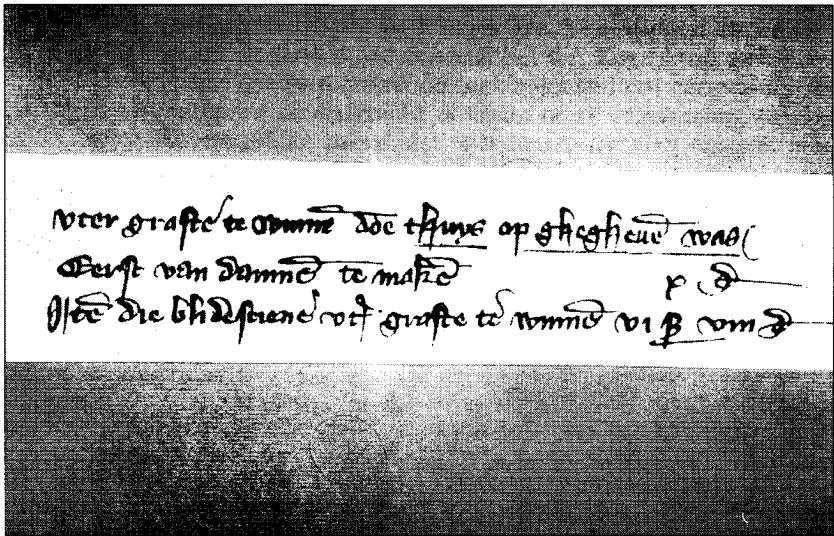 vter grafte te winnē doe thuys op ghegheuē was
Eerst van dammē te makē x d
Itē die blidestiene vt grafte te winnē vi ß viii d